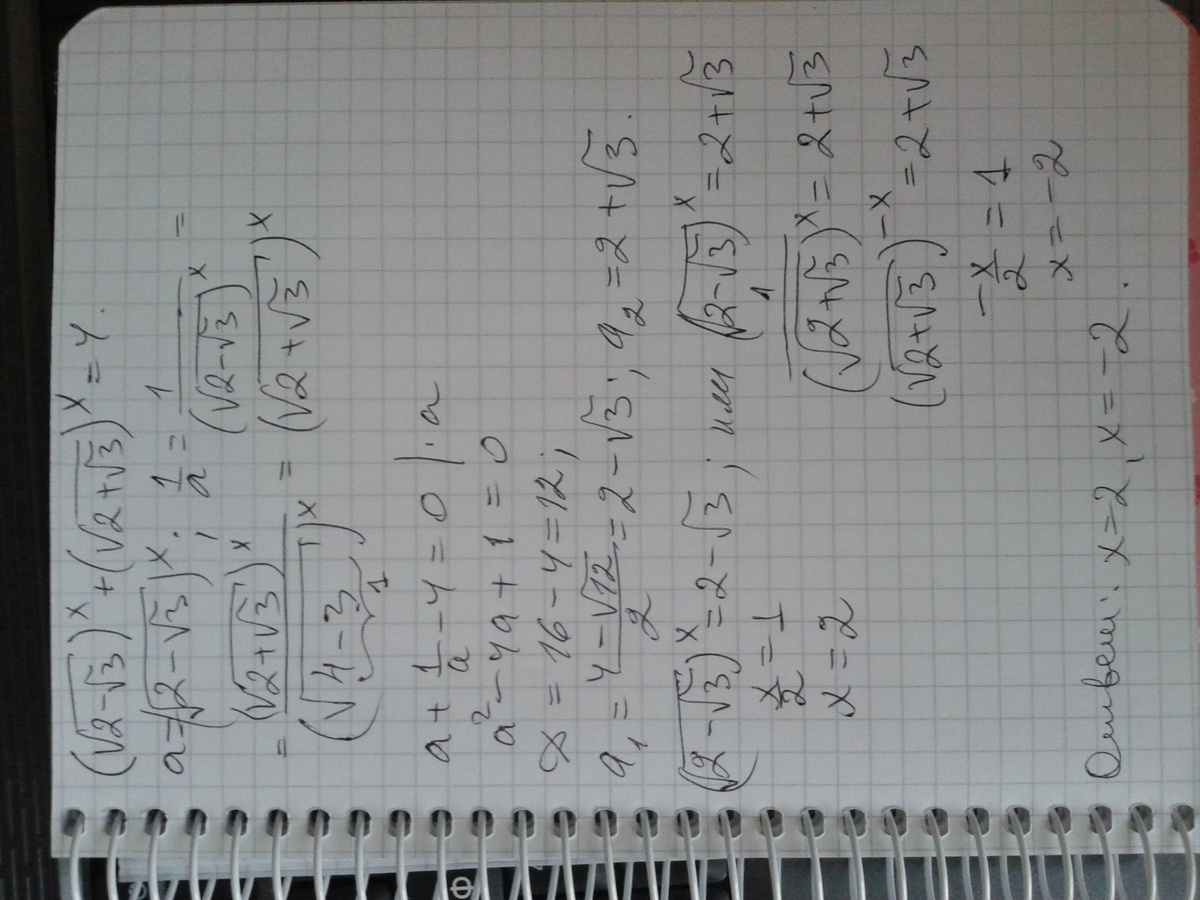 (√(2-√3))^x + (√(2+√3))^x = 4.
a = (√(2-√3))^x; 1/a = 1/(√(2-√3))^x =
= (√(2+√3))^x/(√(4-3))^x = (√(2+√3))^x
1
a + 1/a - 4 = 0 | · a
a² - 4a + 1 = 0
D = 16 - 4 = 12;
a₁ = (4-√12)/2 = 2 - √3; a₂ = 2 + √3.
(√(2-√3))^x = 2 - √3; или (√(2-√3))^x = 2 + √3
x/2 = 1 1/(√(2+√3))^x = 2 + √3
x = 2 (√(2+√3))^-x = 2 + √3
-x/2 = 1
x = -2
Ответ: x = 2, x = -2.
Ф